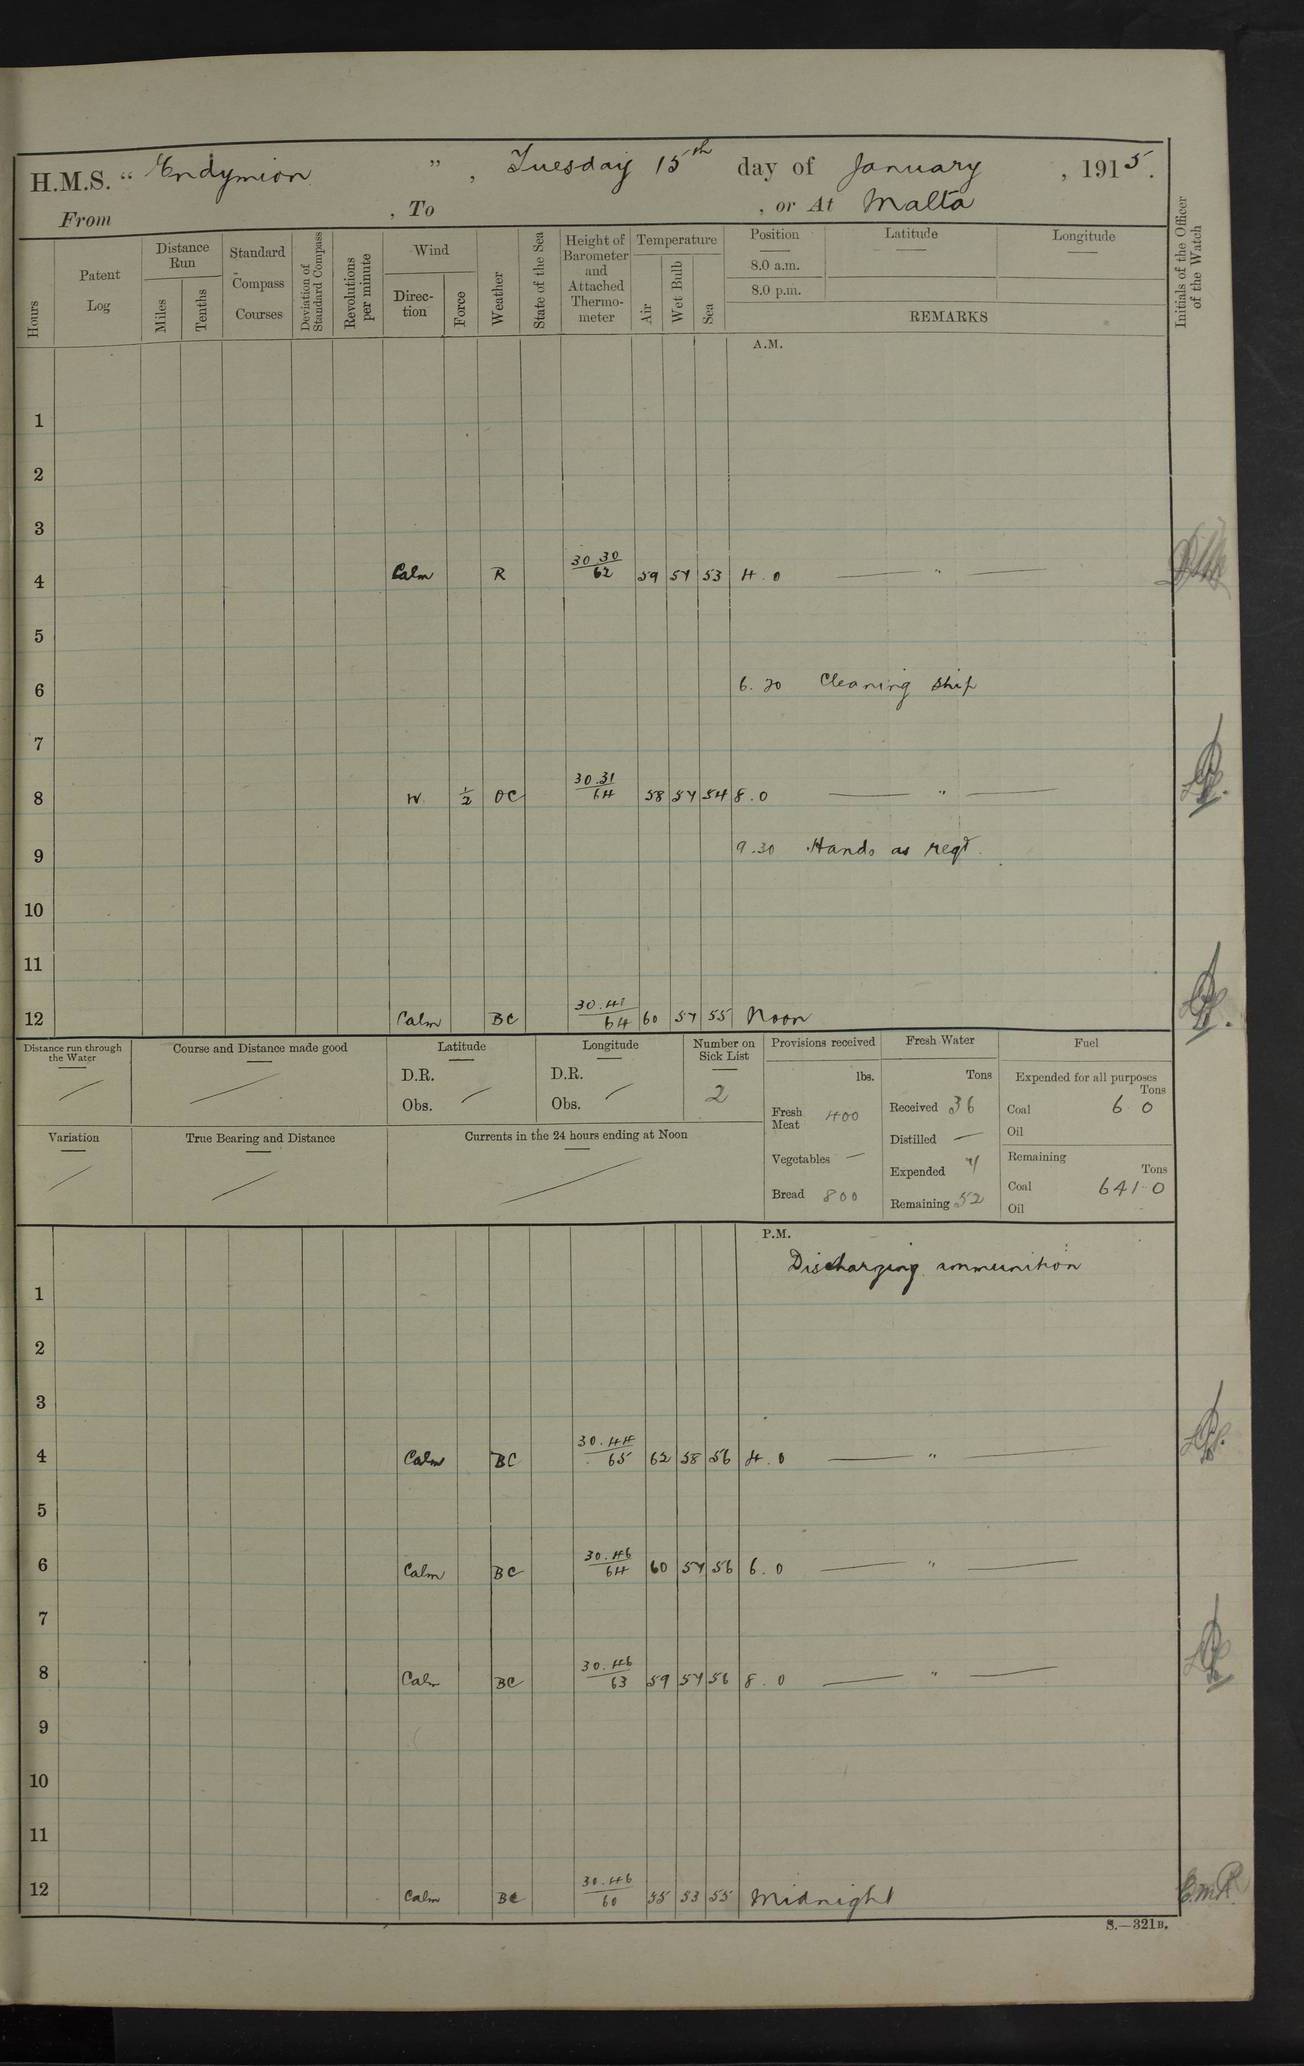 H.M.S. “ Endymion ”, Tuesday 15th day of January, 1915.
From , To , or At Malta
Hours
Patent Log
Distance Run
Miles
Tenths
Standard Compass Courses
Deviation of Standard Compass
Revolutions per minute
Wind
Direc-tion
Force
Weather
State of the Sea
Height of Barometer and Attached Thermo-meter
Temperature
Air
Wet Bulb
Sea
Position
8.0 a.m.
8.0 p.m.
Latitude
Longitude
REMARKS
Initials of the Officer of the Watch
A.M.
1
2
3
4 Calm R 30 30/62 59 57 53 4.0 — " —
5
6 6.30 Cleaning ship
7
8 W 1/2 OC 30.31/64 58 57 54 8.0 — " —
9 9.30 Hands as reqd.
10
11
12 Calm BC 30.41/64 60 57 55 Noon
Distance run through the Water
Course and Distance made good
Latitude
D.R.
Obs.
Longitude
D.R.
Obs.
Number on Sick List
2
Provisions received
lbs.
Fresh Meat 400
Vegetables —
Bread 800
Fresh Water
Tons
Received 36
Distilled —
Expended
Remaining 52
Fuel
Expended for all purposes
Tons
Coal 6 0
Oil
Remaining
Tons
Coal 641.0
Oil
Variation
True Bearing and Distance
Currents in the 24 hours ending at Noon
P.M.
Discharging ammunition
1
2
3
4 Calm BC 30.44/65 62 58 56 4.0 — " —
5
6 Calm BC 30.46/64 60 57 56 6.0 — " —
7
8 Calm BC 30.46/63 59 57 56 8.0 — " —
9
10
11
12 Calm BC 30.46/60 55 53 55 Midnight
S.—321B.